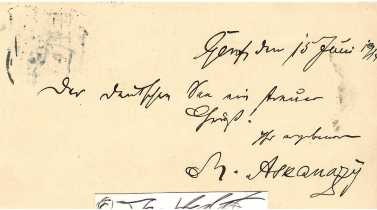 Genf, den 15 Juni
Der deutschen See ein treuer
Gruß.
Ihr ergebener
M. Askanazy